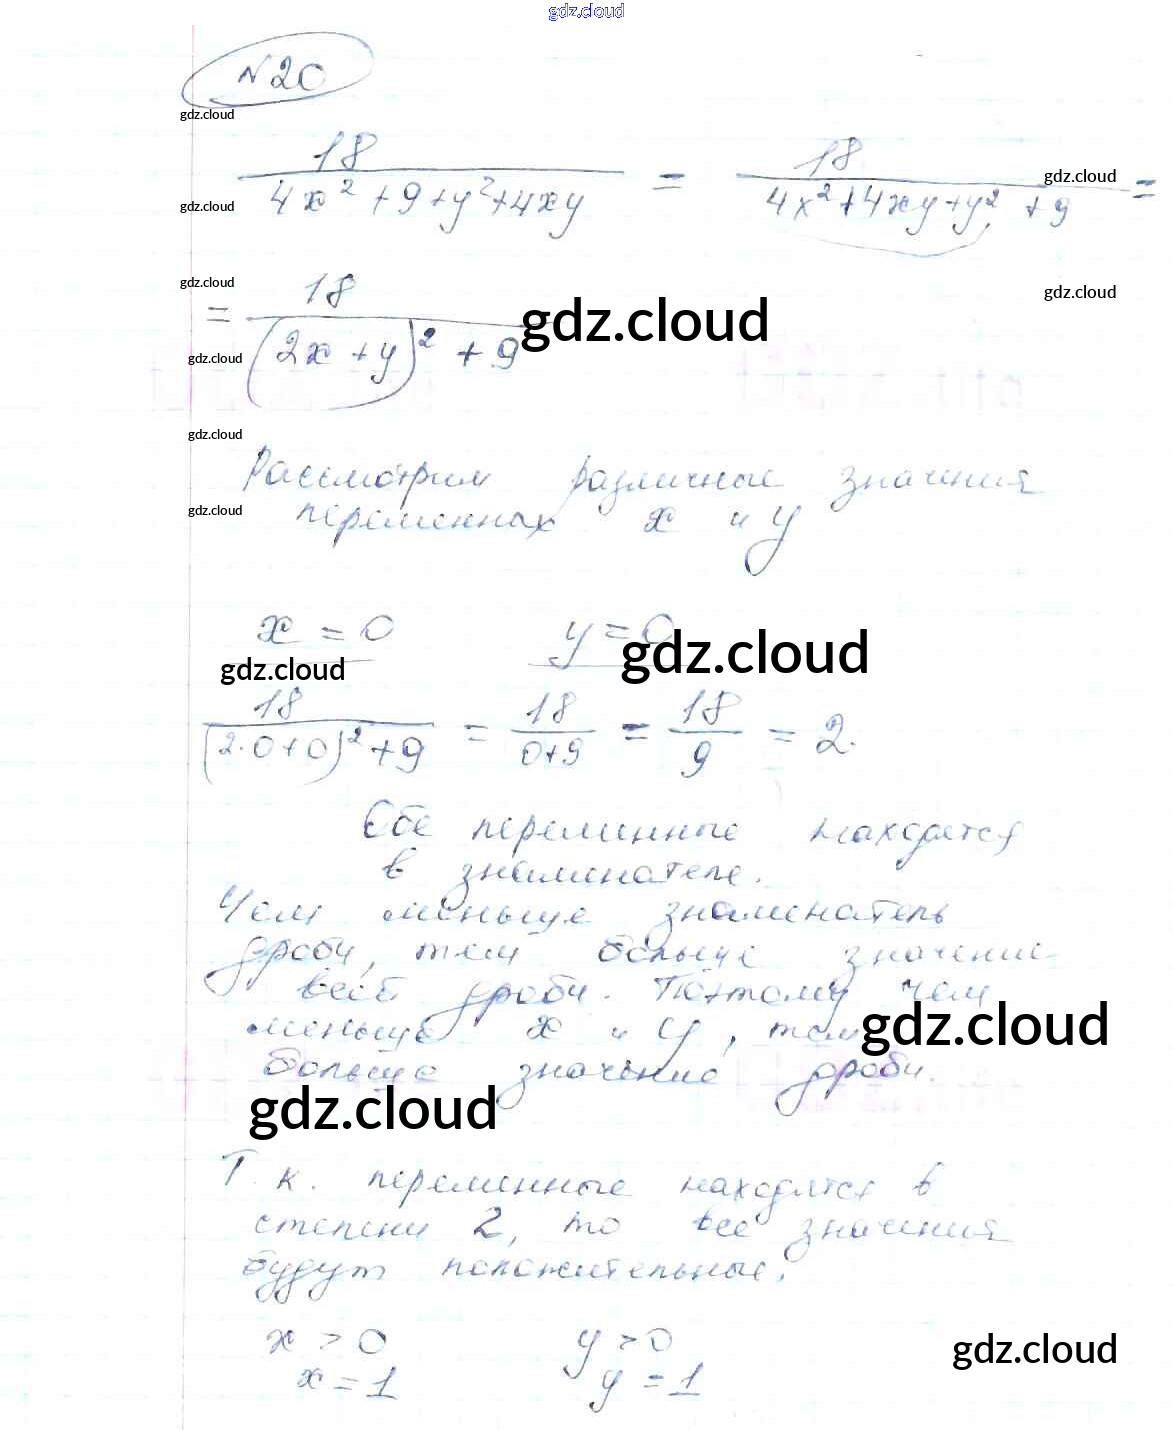 gdz.cloud
№20
gdz.cloud
18 / (4x² + 9 + y² + 4xy) = 18 / (4x² + 4xy + y² + 9) =
gdz.cloud
gdz.cloud
gdz.cloud
gdz.cloud
= 18 / ((2x + y)² + 9)
gdz.cloud
gdz.cloud
gdz.cloud
Рассмотрим различные значения
gdz.cloud
переменных x и y
x = 0 y = 0
gdz.cloud
gdz.cloud
18 / ((2·0+0)² + 9) = 18 / (0+9) = 18 / 9 = 2.
Обе переменные находятся
в знаменателе.
Чем меньше знаменатель
дроби, тем больше значение
всей дроби. Поэтому чем
меньше x и y, тем
gdz.cloud
больше значение дроби.
gdz.cloud
Т.к. переменные находятся в
степени 2, то все значения
будут положительные.
x > 0 y > 0
gdz.cloud
x = 1 y = 1